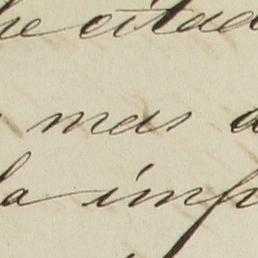 he citad
mas a
la imp